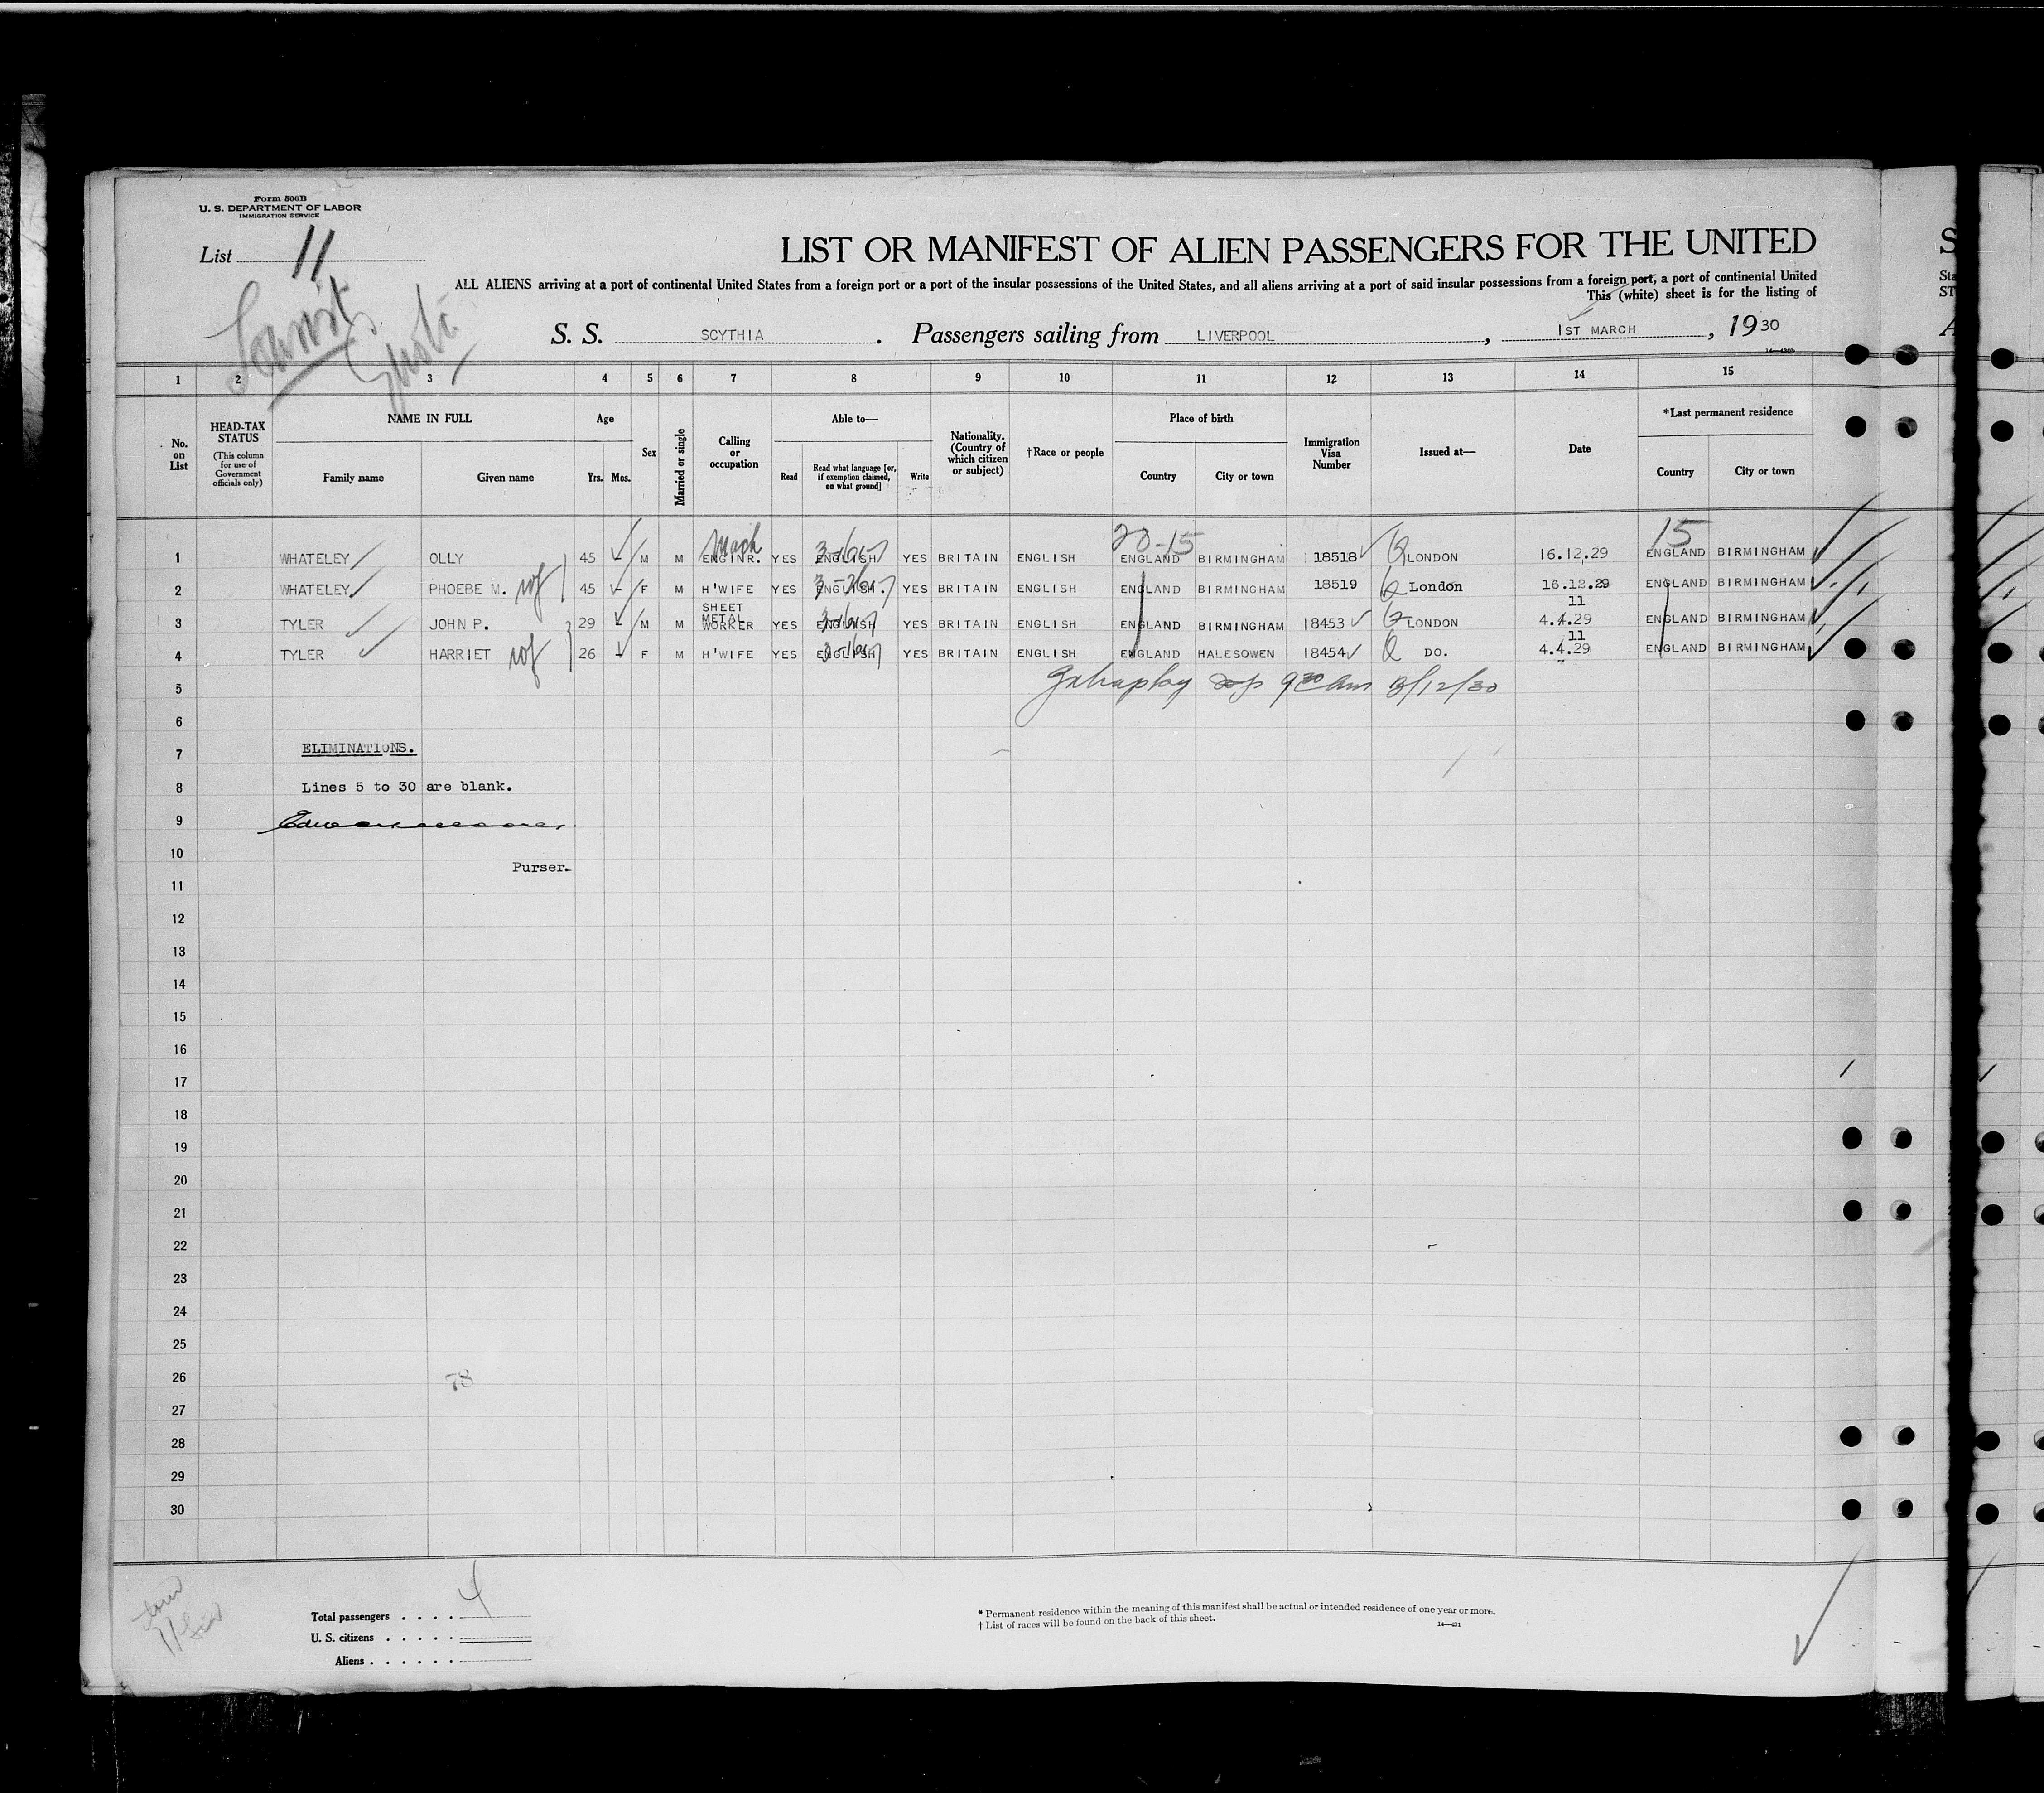 Form 500B
U. S. DEPARTMENT OF LABOR
IMMIGRATION SERVICE
List 11
LIST OR MANIFEST OF ALIEN PASSENGERS FOR THE UNITED
ALL ALIENS arriving at a port of continental United States from a foreign port or a port of the insular possessions of the United States, and all aliens arriving at a port of said insular possessions from a foreign port, a port of continental United
This (white) sheet is for the listing of
S. S. SCYTHIA. Passengers sailing from LIVERPOOL, 1ST MARCH, 1930
1 2 3 4 5 6 7 8 9 10 11 12 13 14 15
No. on List
HEAD-TAX STATUS
(This column for use of Government officials only)
NAME IN FULL
Family name Given name
Age
Yrs. Mos.
Sex
Married or single
Calling or occupation
Able to—
Read Read what language [or, if exemption claimed, on what ground] Write
Nationality. (Country of which citizen or subject)
†Race or people
Place of birth
Country City or town
Immigration Visa Number
Issued at—
Date
*Last permanent residence
Country City or town
Mech 20-15 15
1 WHATELEY OLLY 45 - M M ENGINR. YES ENGLISH YES BRITAIN ENGLISH ENGLAND BIRMINGHAM 18518 LONDON 16.12.29 ENGLAND BIRMINGHAM
2 WHATELEY PHOEBE M. wf 45 - F M H'WIFE YES ENGLISH. YES BRITAIN ENGLISH ENGLAND BIRMINGHAM 18519 London 16.12.29 ENGLAND BIRMINGHAM
3 TYLER JOHN P. 29 - M M SHEET METAL WORKER YES ENGLISH YES BRITAIN ENGLISH ENGLAND BIRMINGHAM 18453 LONDON 4.11.29 ENGLAND BIRMINGHAM
4 TYLER HARRIET wf 26 - F M H'WIFE YES ENGLISH YES BRITAIN ENGLISH ENGLAND HALESOWEN 18454 DO. 4.11.29 ENGLAND BIRMINGHAM
5
6
7 ELIMINATIONS.
8 Lines 5 to 30 are blank.
9
10
Purser.
11
12
13
14
15
16
17
18
19
20
21
22
23
24
25
26 78
27
28
29
30
Total passengers . . . . 4
U. S. citizens . . . . .
Aliens . . . . . .
* Permanent residence within the meaning of this manifest shall be actual or intended residence of one year or more.
† List of races will be found on the back of this sheet.